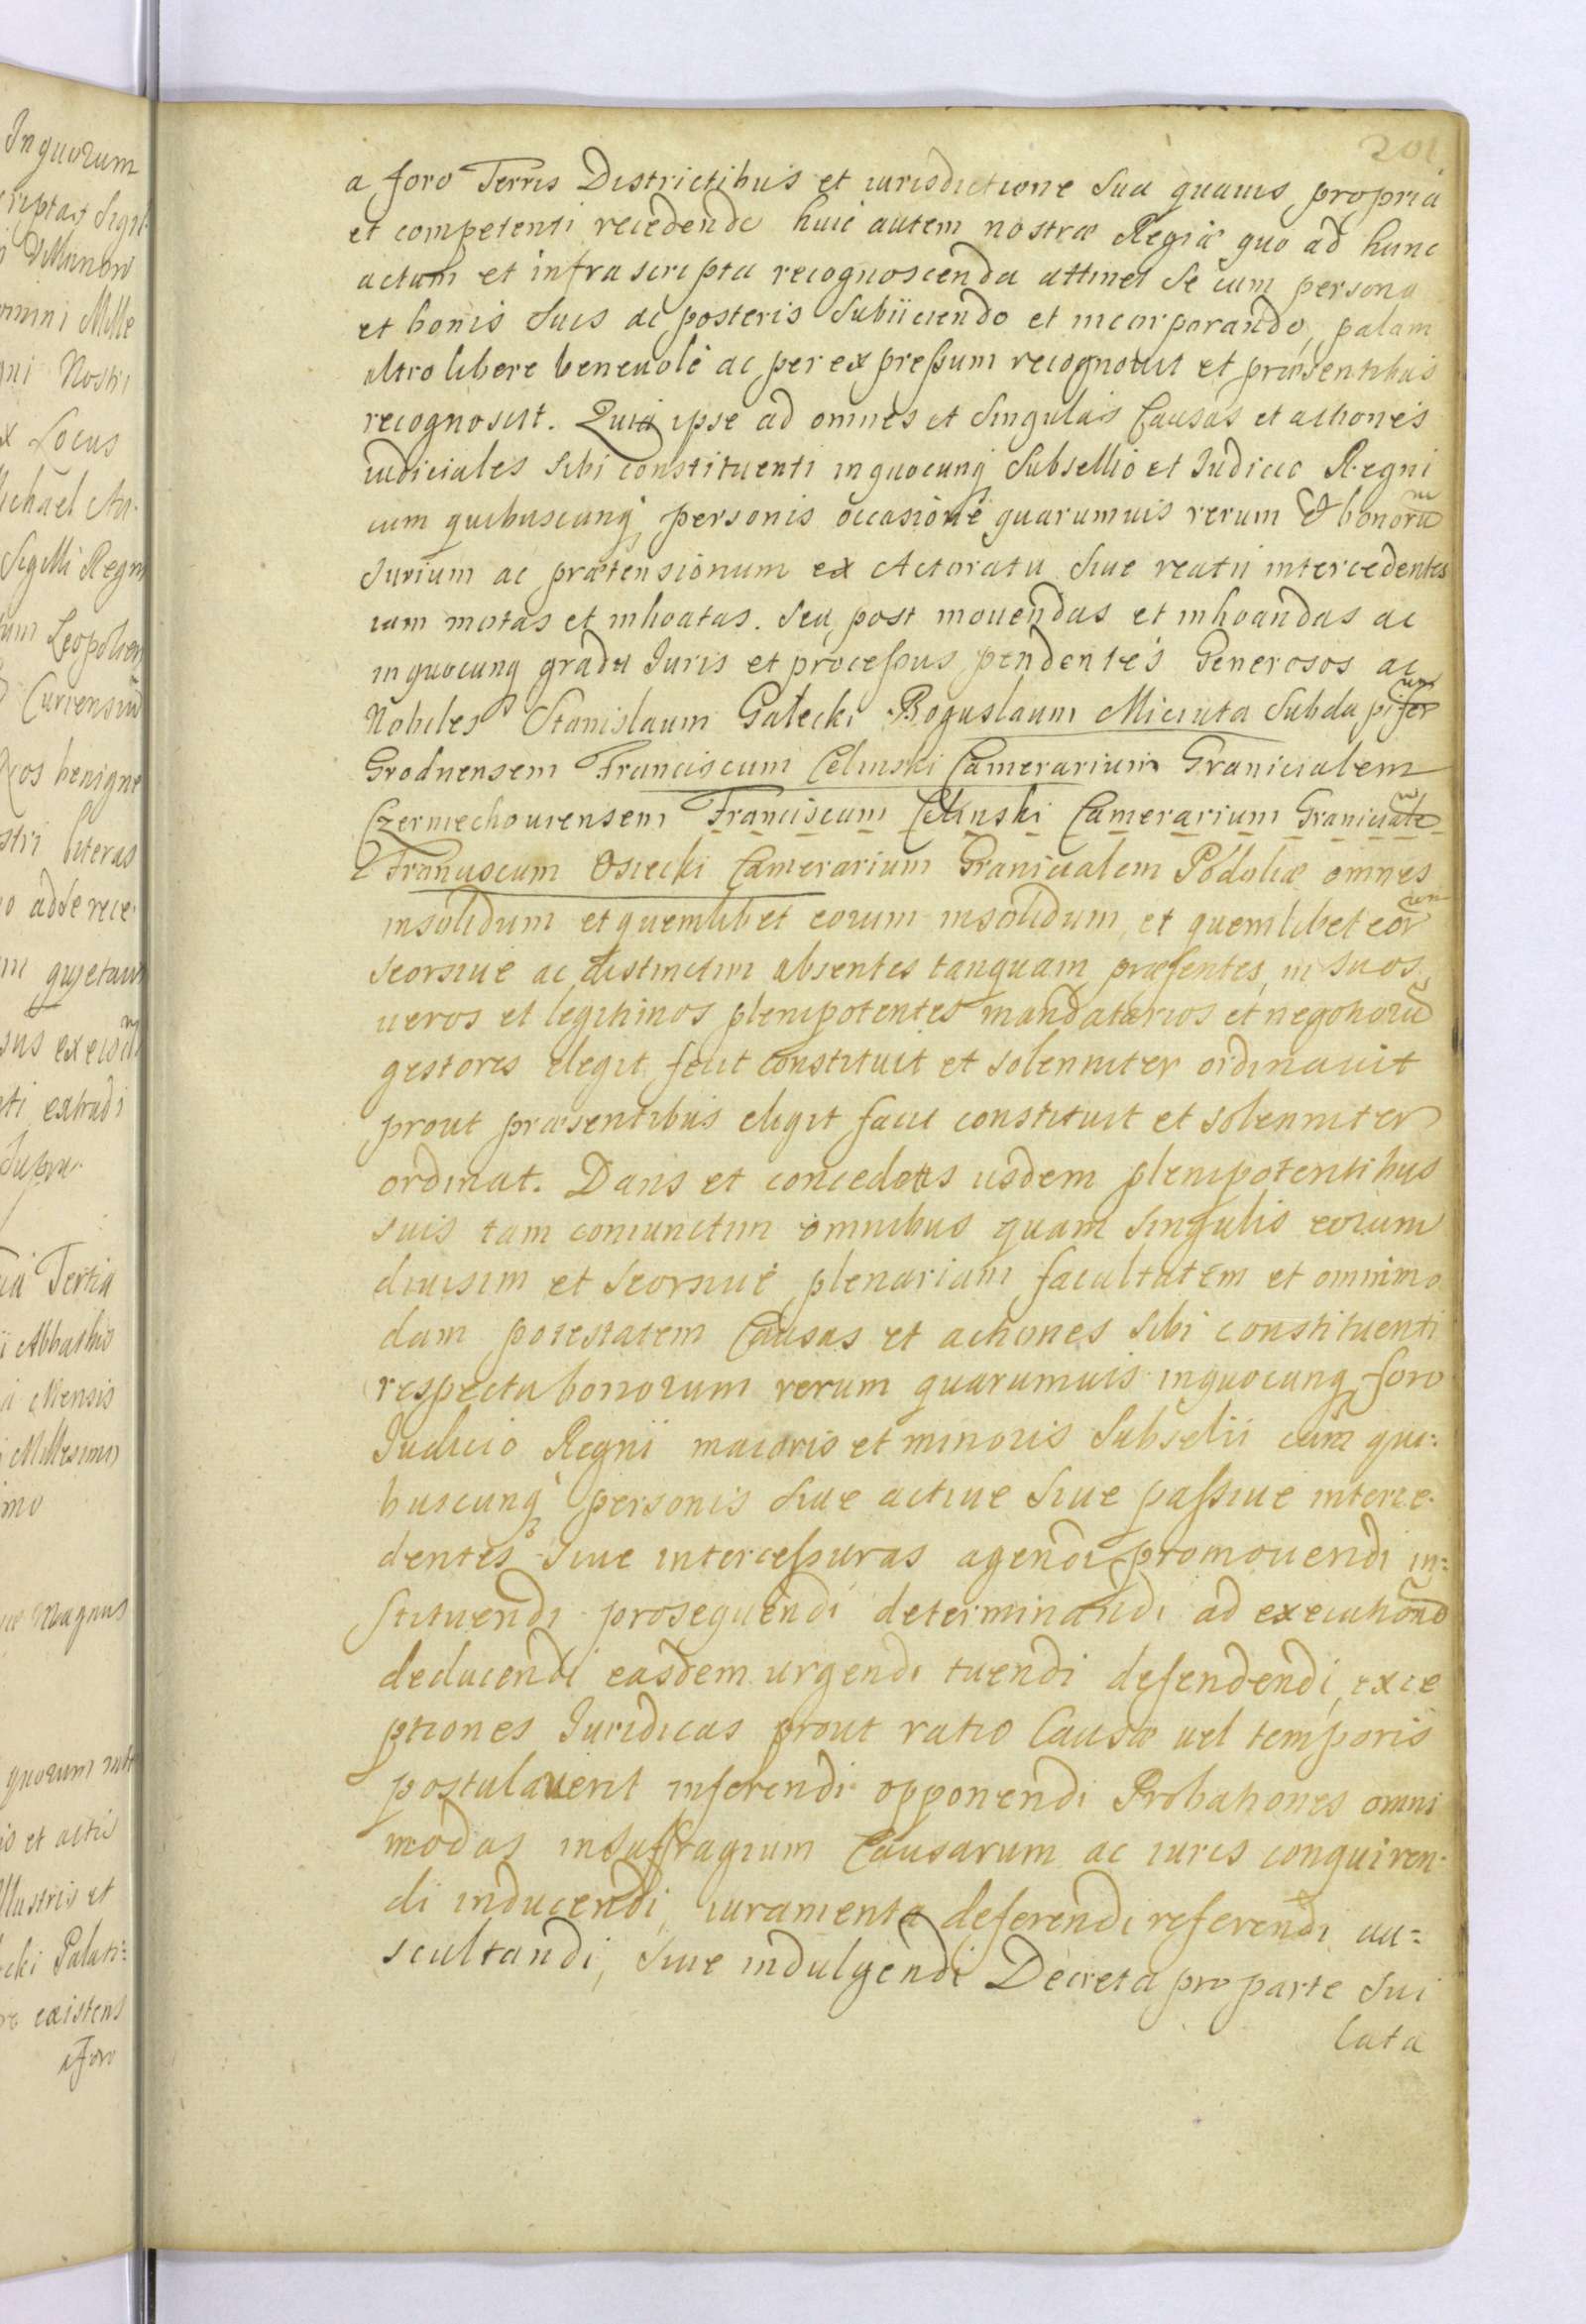 201
a foro Terris Districtibus et iurisdictione sua quauis propria
et competenti recedendo huic autem nostræ Regiæ quo ad hunc
actum et infrascripta recognoscenda attinet se cum persona
et bonis suis ac posteris subiiciendo et incorporando, palam
ultro libere beneuolè ac per expressum recognouit et præsentibus
recognoscit. Quia ipse ad omnes et singulas Causas et actiones
iudiciales sibi constituenti inquocunq subsellio et Iudicio Regni
cum quibuscunq personis occasione quarumuis rerum & bonorũ
Iurium ac prætensionum ex Actoratu siue reatu intercedentes
iam motas et inhoatas. seu post mouendas et inhoandas ac
inquocunq gradu Iuris et processus pendentes Generosos ac
Nobiles Stanislaum Gałecki Boguslaum Miciuta Subdapifer
Grodnensem Franciscum Celinski Camerarium Granicialem
Czerniechouiensem Franciscum Celinski Camerarium Graniciale
Franciscum Osiecki Camerarium Granicialem Podoliæ omnes
insolidum et quemlibet eorum insolidum, et quemlibet eor
seorsiue ac distinctim absentes tanquam præsentes, in suos
ueros et legitimos plenipotentes mandatarios et negotiorũ
gestores elegit fecit constituit et solenniter ordinauit
prout præsentibus eligit facit constituit et solenniter
ordinat. Dans et concedens iisdem plenipotentibus
suis tam coniunctim omnibus quam singulis eorum
diuisim et seorsiuè plenariam facultatem et omnimo
dam potestatem Causas et actiones sibi constituenti
respectu bonorum rerum quarumuis inquocunq foro
Iudicio Regni maioris et minoris Subselii cum qui:
buscunq personis siue actiue siue passiuè interce-
dentes siue intercessuras agendi promouendi in:
stituendi prosequendi determinandi ad executionẽ
deducendi easdem urgendi tuendi defendendi, exce
ptiones Iuridicas prout ratio Causæ uel temporis
postulauerit inferendi opponendi Probationes omni
modas insuffragium Causarum ac iuris conquiren-
di inducendi, iuramenta deferendi referendi au=
scultandi, siue indulgendi Decreta pro parte sui
lata